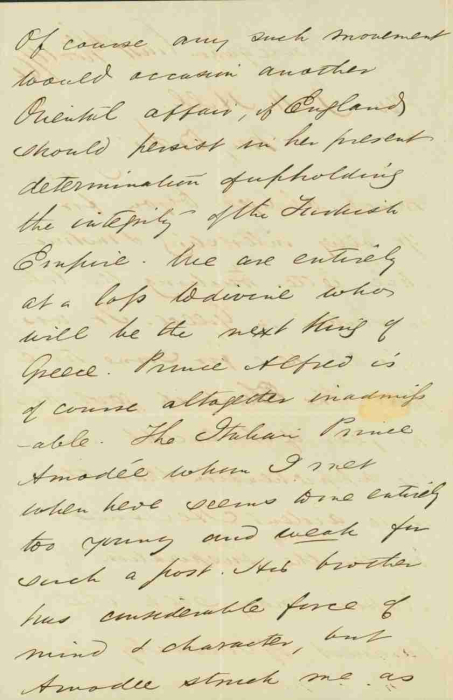 Of course any such movement
would occasion another
Oriental affair, if England
should persist in her present
determination of upholding
the integrity of the Turkish
Empire. We are entirely
at a loss to divine who
will be the next King of
Greece. Prince Alfred is
of course altogether inadmiss
-able. The Italian Prince
Amodée whom I met
when here seems to me entirely
too young and weak for
such a post. His brother
has considerable force of
mind & character, but
Amodée struck me as